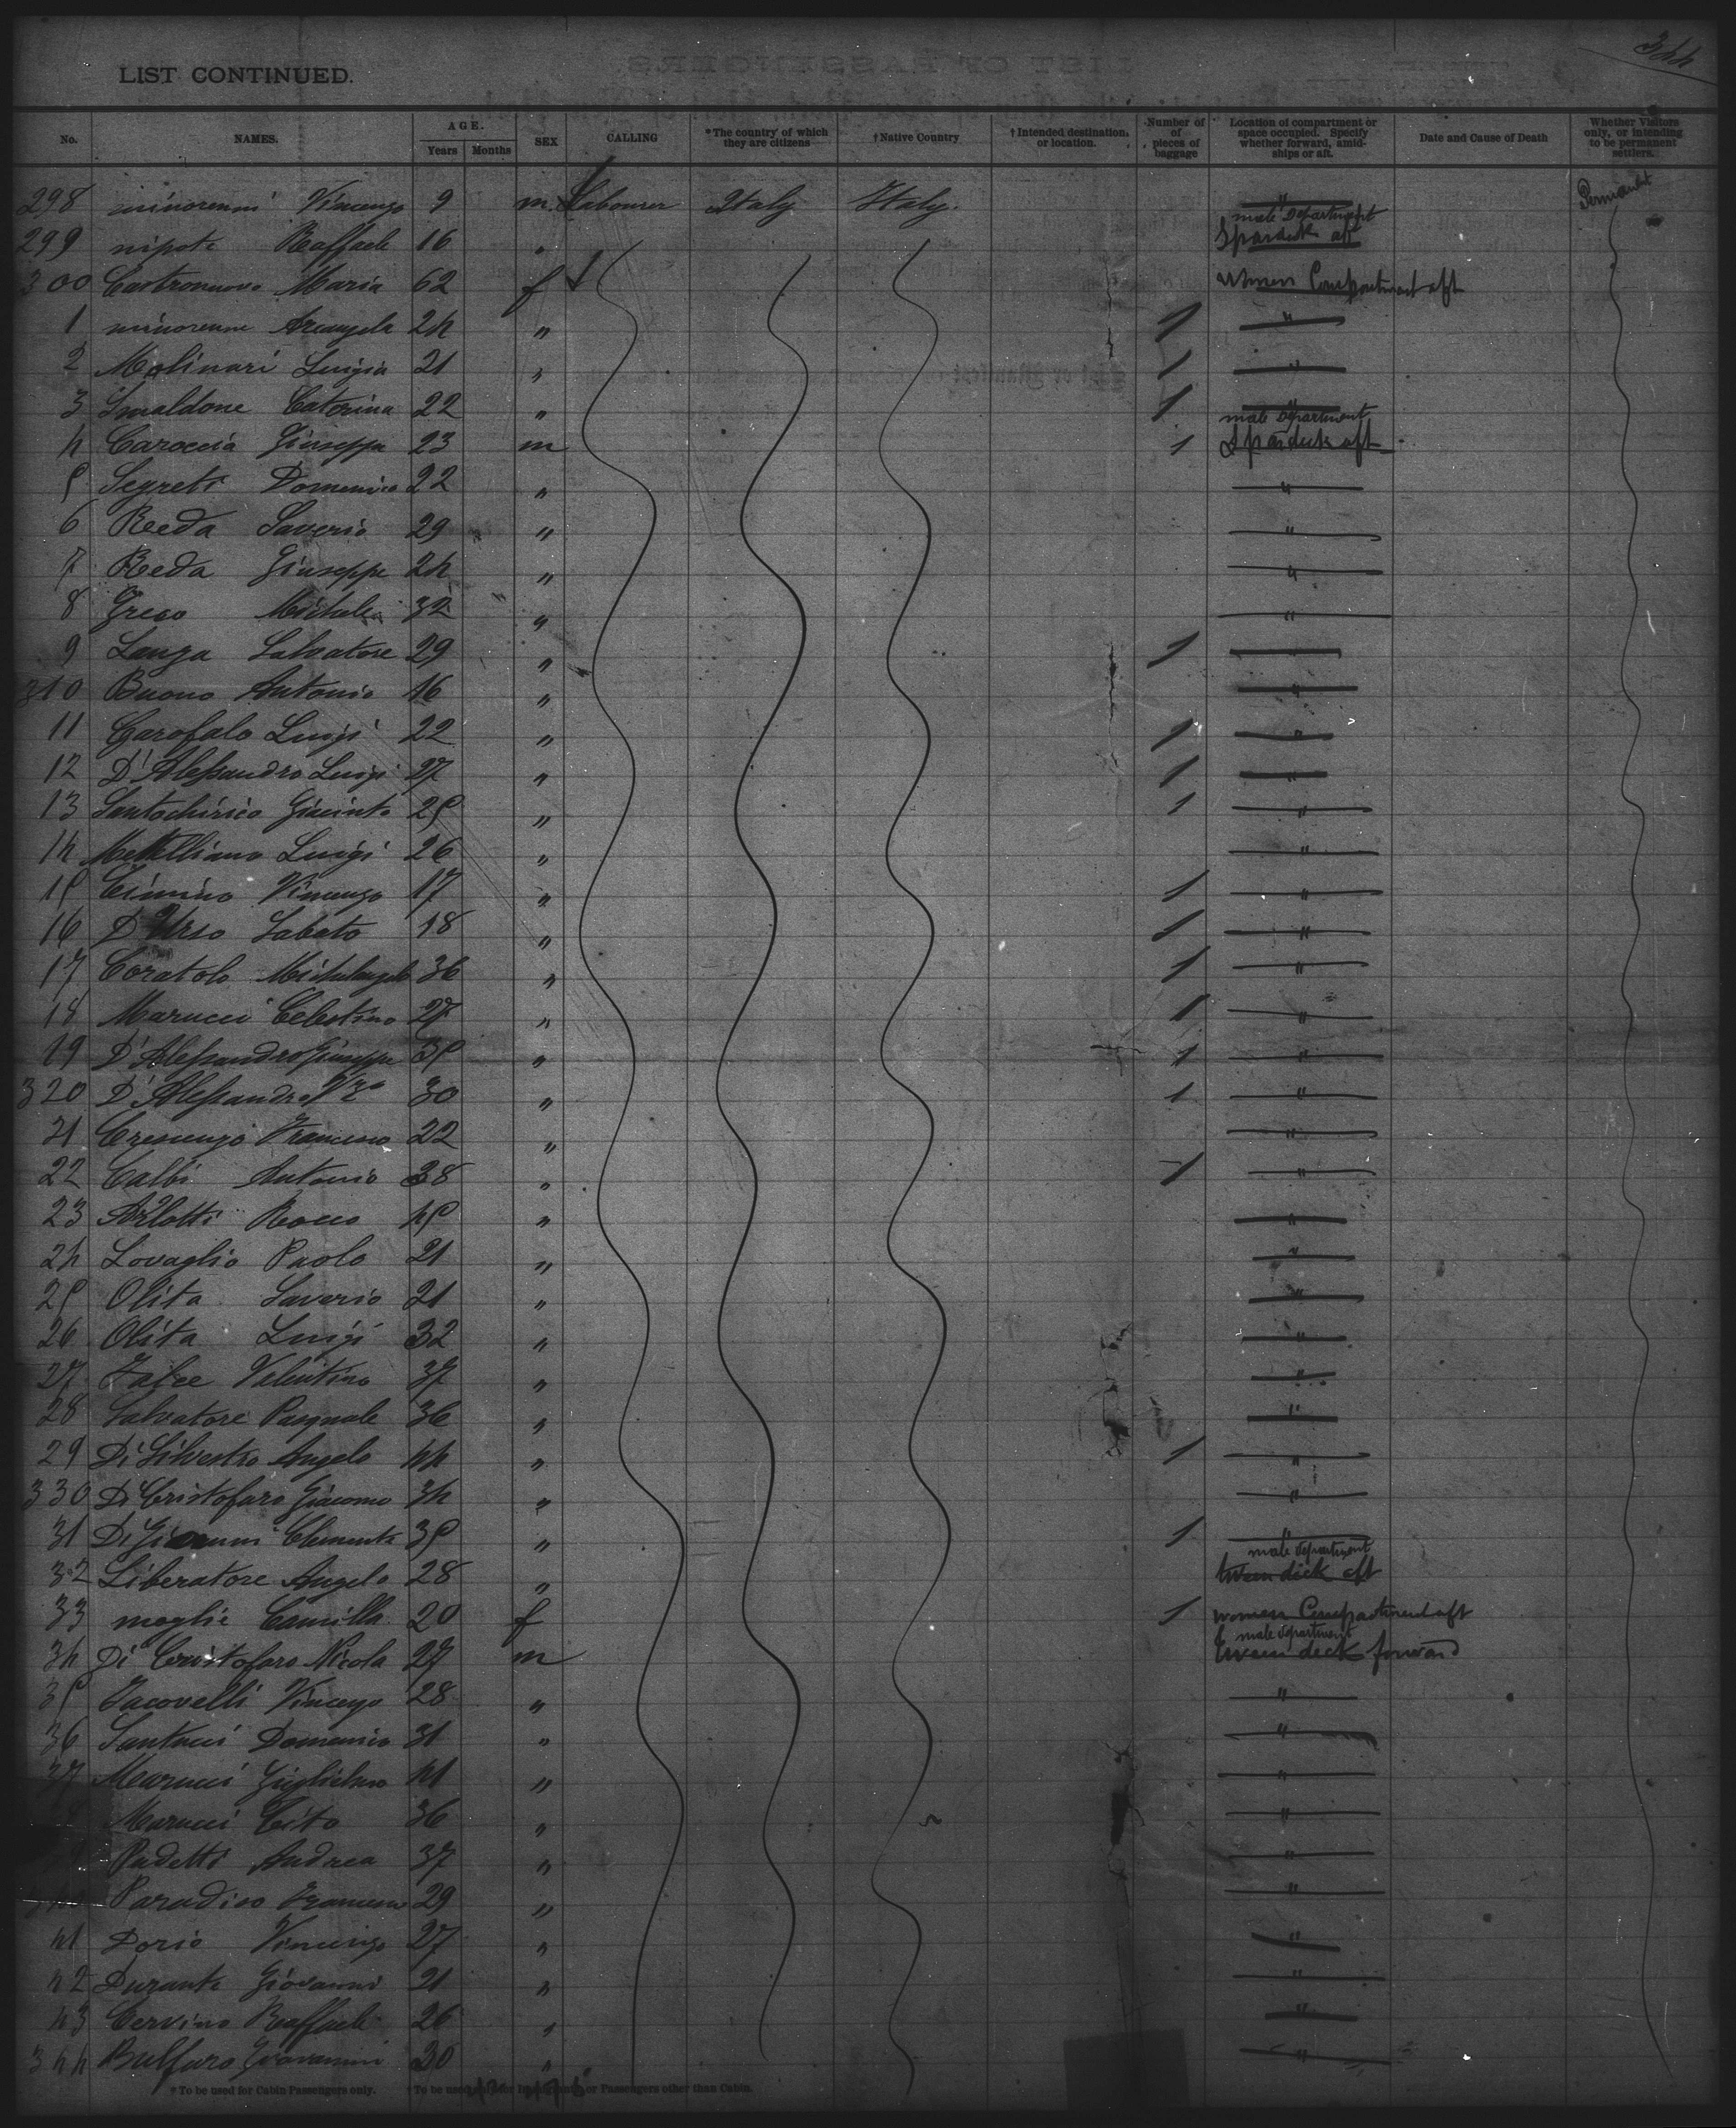 344
LIST CONTINUED.
No. NAMES. AGE. Years Months SEX CALLING *The country of which they are citizens †Native Country †Intended destination, or location. Number of pieces of baggage Location of compartment or space occupied. Specify whether forward, amidships or aft. Date and Cause of Death Whether Visitors only, or intending to be permanent settlers.
298 minorenni Vincenzo 9 m. Labourer Italy Italy. " Permanent
299 nipote Raffaele 16 " male Department Spardeck aft
300 Castronuovo Maria 62 f women Compartment aft
1 minorenne Arcangela 24 " 1 "
2 Molinari Luigia 21 " 1 "
3 Smaldone Caterina 22 " 1 "
4 Caroccia Giuseppe 23 m 1 male Department Spardeck aft
5 Segreti Domenico 22 " "
6 Reda Saverio 29 " "
7 Reda Giuseppe 24 " "
8 Greco Michele 32 " "
9 Langa Salvatore 29 " 1 "
310 Buono Antonio 16 " "
11 Garofalo Luigi 22 " 1 "
12 D'Alessandro Luigi 27 " 1 "
13 Santochirico Giacinto 25 " 1 "
14 Luigi 26 " "
15 Cimino Vincenzo 17 " 1 "
16 D'Urso Sabato 18 " 1 "
17 Coratolo Michelangelo 36 " 1 "
18 Marucci Celestino 27 " 1 "
19 D'Alessandro Giuseppe 35 " 1 "
320 D'Alessandro Vzo 30 " 1 "
21 Crescenzo Francesco 22 " "
22 Calbi Antonio 38 " 1 "
23 Arlotti Rocco 45 " "
24 Lovaglio Paolo 21 " "
25 Olita Saverio 21 " "
26 Olita Luigi 32 " "
27 Valentino 37 " "
28 Salvatore Pasquale 36 " "
29 Di Silvestro Angelo 44 " 1 "
330 Di Cristofaro Giacomo 34 " "
31 Di Giovanni Clemente 35 " 1 "
32 Liberatore Angelo 28 " male department tween deck aft
33 moglie Camilla 20 f 1 women Compartment aft
34 Di Cristofaro Nicola 27 m male department tween deck forward
35 Iacovelli Vincenzo 28 " "
36 Santucci Domenico 31 " "
37 Marucci Guglielmo 41 " "
Marucci Tito 36 " "
Padetti Andrea 37 " "
Paradiso Francesco 29 " "
41 Dorio Vincenzo 27 " "
42 Durante Giovanni 21 " "
43 Cervino Raffaele 26 " "
344 Bulfaro Giovanni 20 " "
*To be used for Cabin Passengers only. †To be used or Passengers other than Cabin.